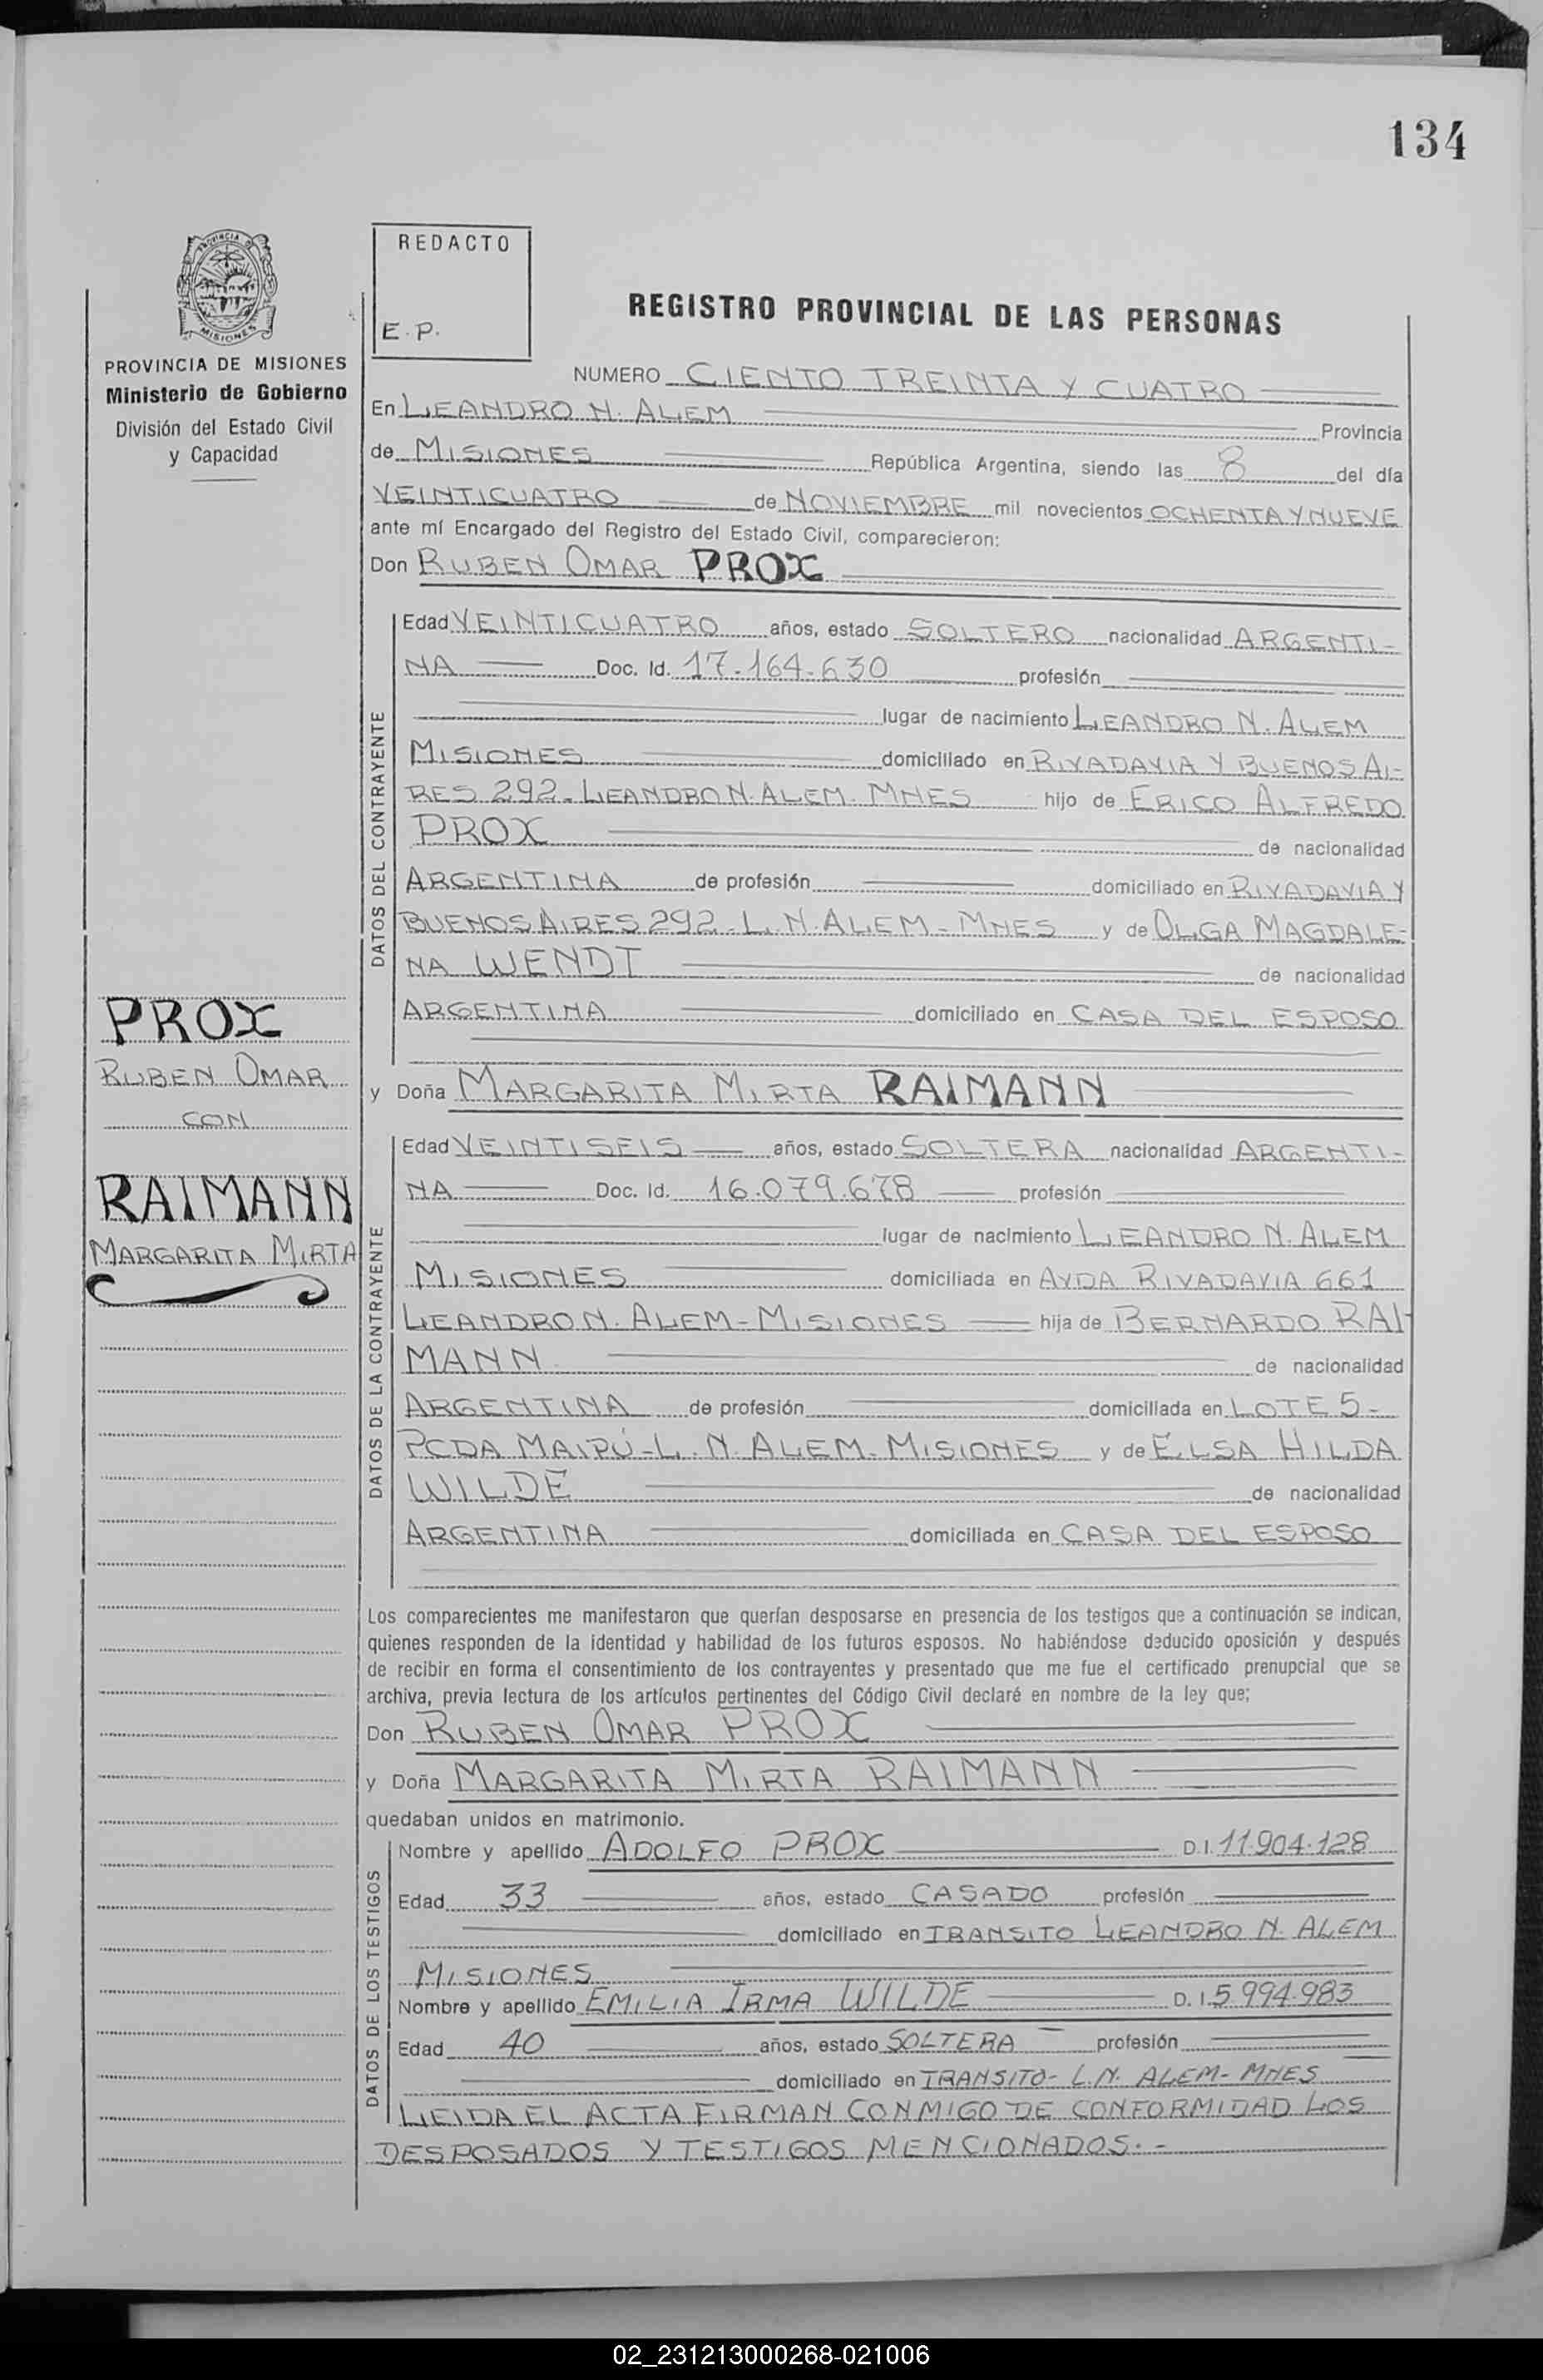 134
PROVINCIA DE
MISIONES
PROVINCIA DE MISIONES
Ministerio de Gobierno
División del Estado Civil
y Capacidad
REDACTO
E.P.
REGISTRO PROVINCIAL DE LAS PERSONAS
NUMERO CIENTO TREINTA Y CUATRO
En LEANDRO N. ALEM Provincia
de MISIONES República Argentina, siendo las 8 del día
VEINTICUATRO de NOVIEMBRE mil novecientos OCHENTA Y NUEVE
ante mí Encargado del Registro del Estado Civil, comparecieron:
Don RUBEN OMAR PROX
DATOS DEL CONTRAYENTE
Edad VEINTICUATRO años, estado SOLTERO nacionalidad ARGENTI-
NA Doc. Id. 17.164.630 profesión
lugar de nacimiento LEANDRO N. ALEM
MISIONES domiciliado en RIVADAVIA Y BUENOS AI-
RES 292- LEANDRO N. ALEM- MNES hijo de ERICO ALFREDO
PROX de nacionalidad
ARGENTINA de profesión domiciliado en RIVADAVIA Y
BUENOS AIRES 292- L. N. ALEM- MNES y de OLGA MAGDALE-
NA WENDT de nacionalidad
ARGENTINA domiciliado en CASA DEL ESPOSO
PROX
RUBEN OMAR
CON
RAIMANN
MARGARITA MIRTA
y Doña MARGARITA MIRTA RAIMANN
DATOS DE LA CONTRAYENTE
Edad VEINTISEIS años, estado SOLTERA nacionalidad ARGENTI-
NA Doc. Id. 16.079.678 profesión
lugar de nacimiento LEANDRO N. ALEM
MISIONES domiciliada en AVDA RIVADAVIA 661
LEANDRO N. ALEM- MISIONES hija de BERNARDO RAI-
MANN de nacionalidad
ARGENTINA de profesión domiciliada en LOTE 5-
PCDA MAIPÚ- L. N. ALEM- MISIONES y de ELSA HILDA
WILDE de nacionalidad
ARGENTINA domiciliada en CASA DEL ESPOSO
Los comparecientes me manifestaron que querían desposarse en presencia de los testigos que a continuación se indican,
quienes responden de la identidad y habilidad de los futuros esposos. No habiéndose deducido oposición y después
de recibir en forma el consentimiento de los contrayentes y presentado que me fue el certificado prenupcial que se
archiva, previa lectura de los artículos pertinentes del Código Civil declaré en nombre de la ley que;
Don RUBEN OMAR PROX
y Doña MARGARITA MIRTA RAIMANN
quedaban unidos en matrimonio.
DATOS DE LOS TESTIGOS
Nombre y apellido ADOLFO PROX D.I. 11.904.128
Edad 33 años, estado CASADO profesión
domiciliado en TRANSITO LEANDRO N. ALEM
MISIONES
Nombre y apellido EMILIA IRMA WILDE D. I. 5.994.983
Edad 40 años, estado SOLTERA profesión
domiciliado en TRANSITO- L.N. ALEM- MNES
LEIDA EL ACTA FIRMAN CONMIGO DE CONFORMIDAD LOS
DESPOSADOS Y TESTIGOS MENCIONADOS.-
02_231213000268-021006